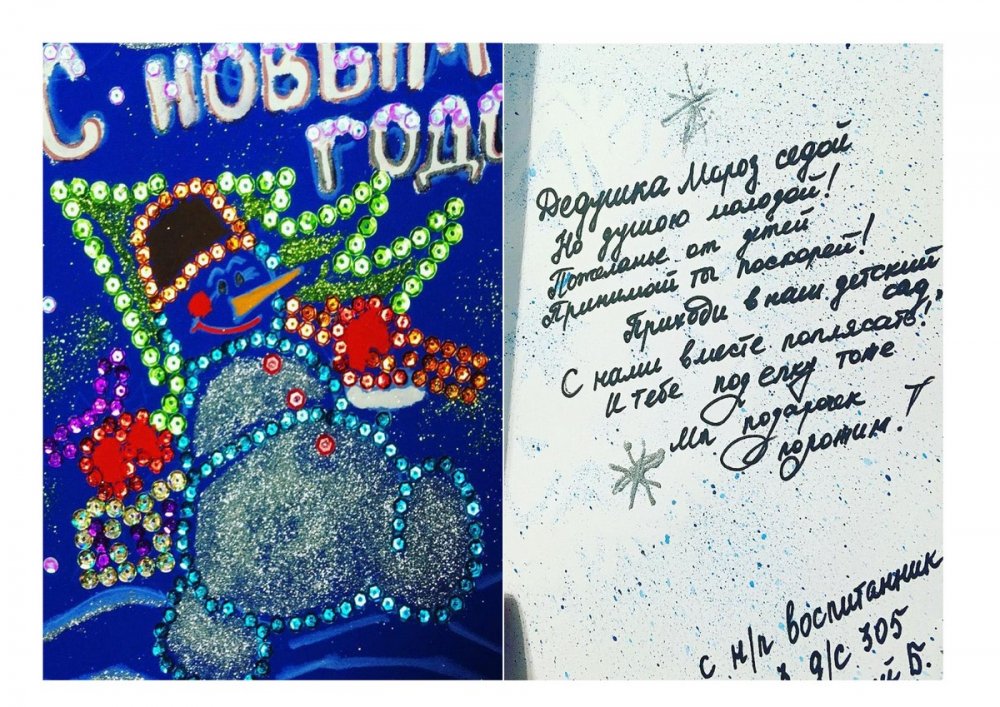 С НОВЫМ
ГОДО
Дедушка Мороз седой
Но душою молодой!
Пожеланье от детей
Принимай ты поскорей!
Приходи в наш детский
сад,
С нами вместе поплясать!
И тебе под елку тоже
Мы подарочек
положим!
с н/г воспитанник
д/с 305
й Б.